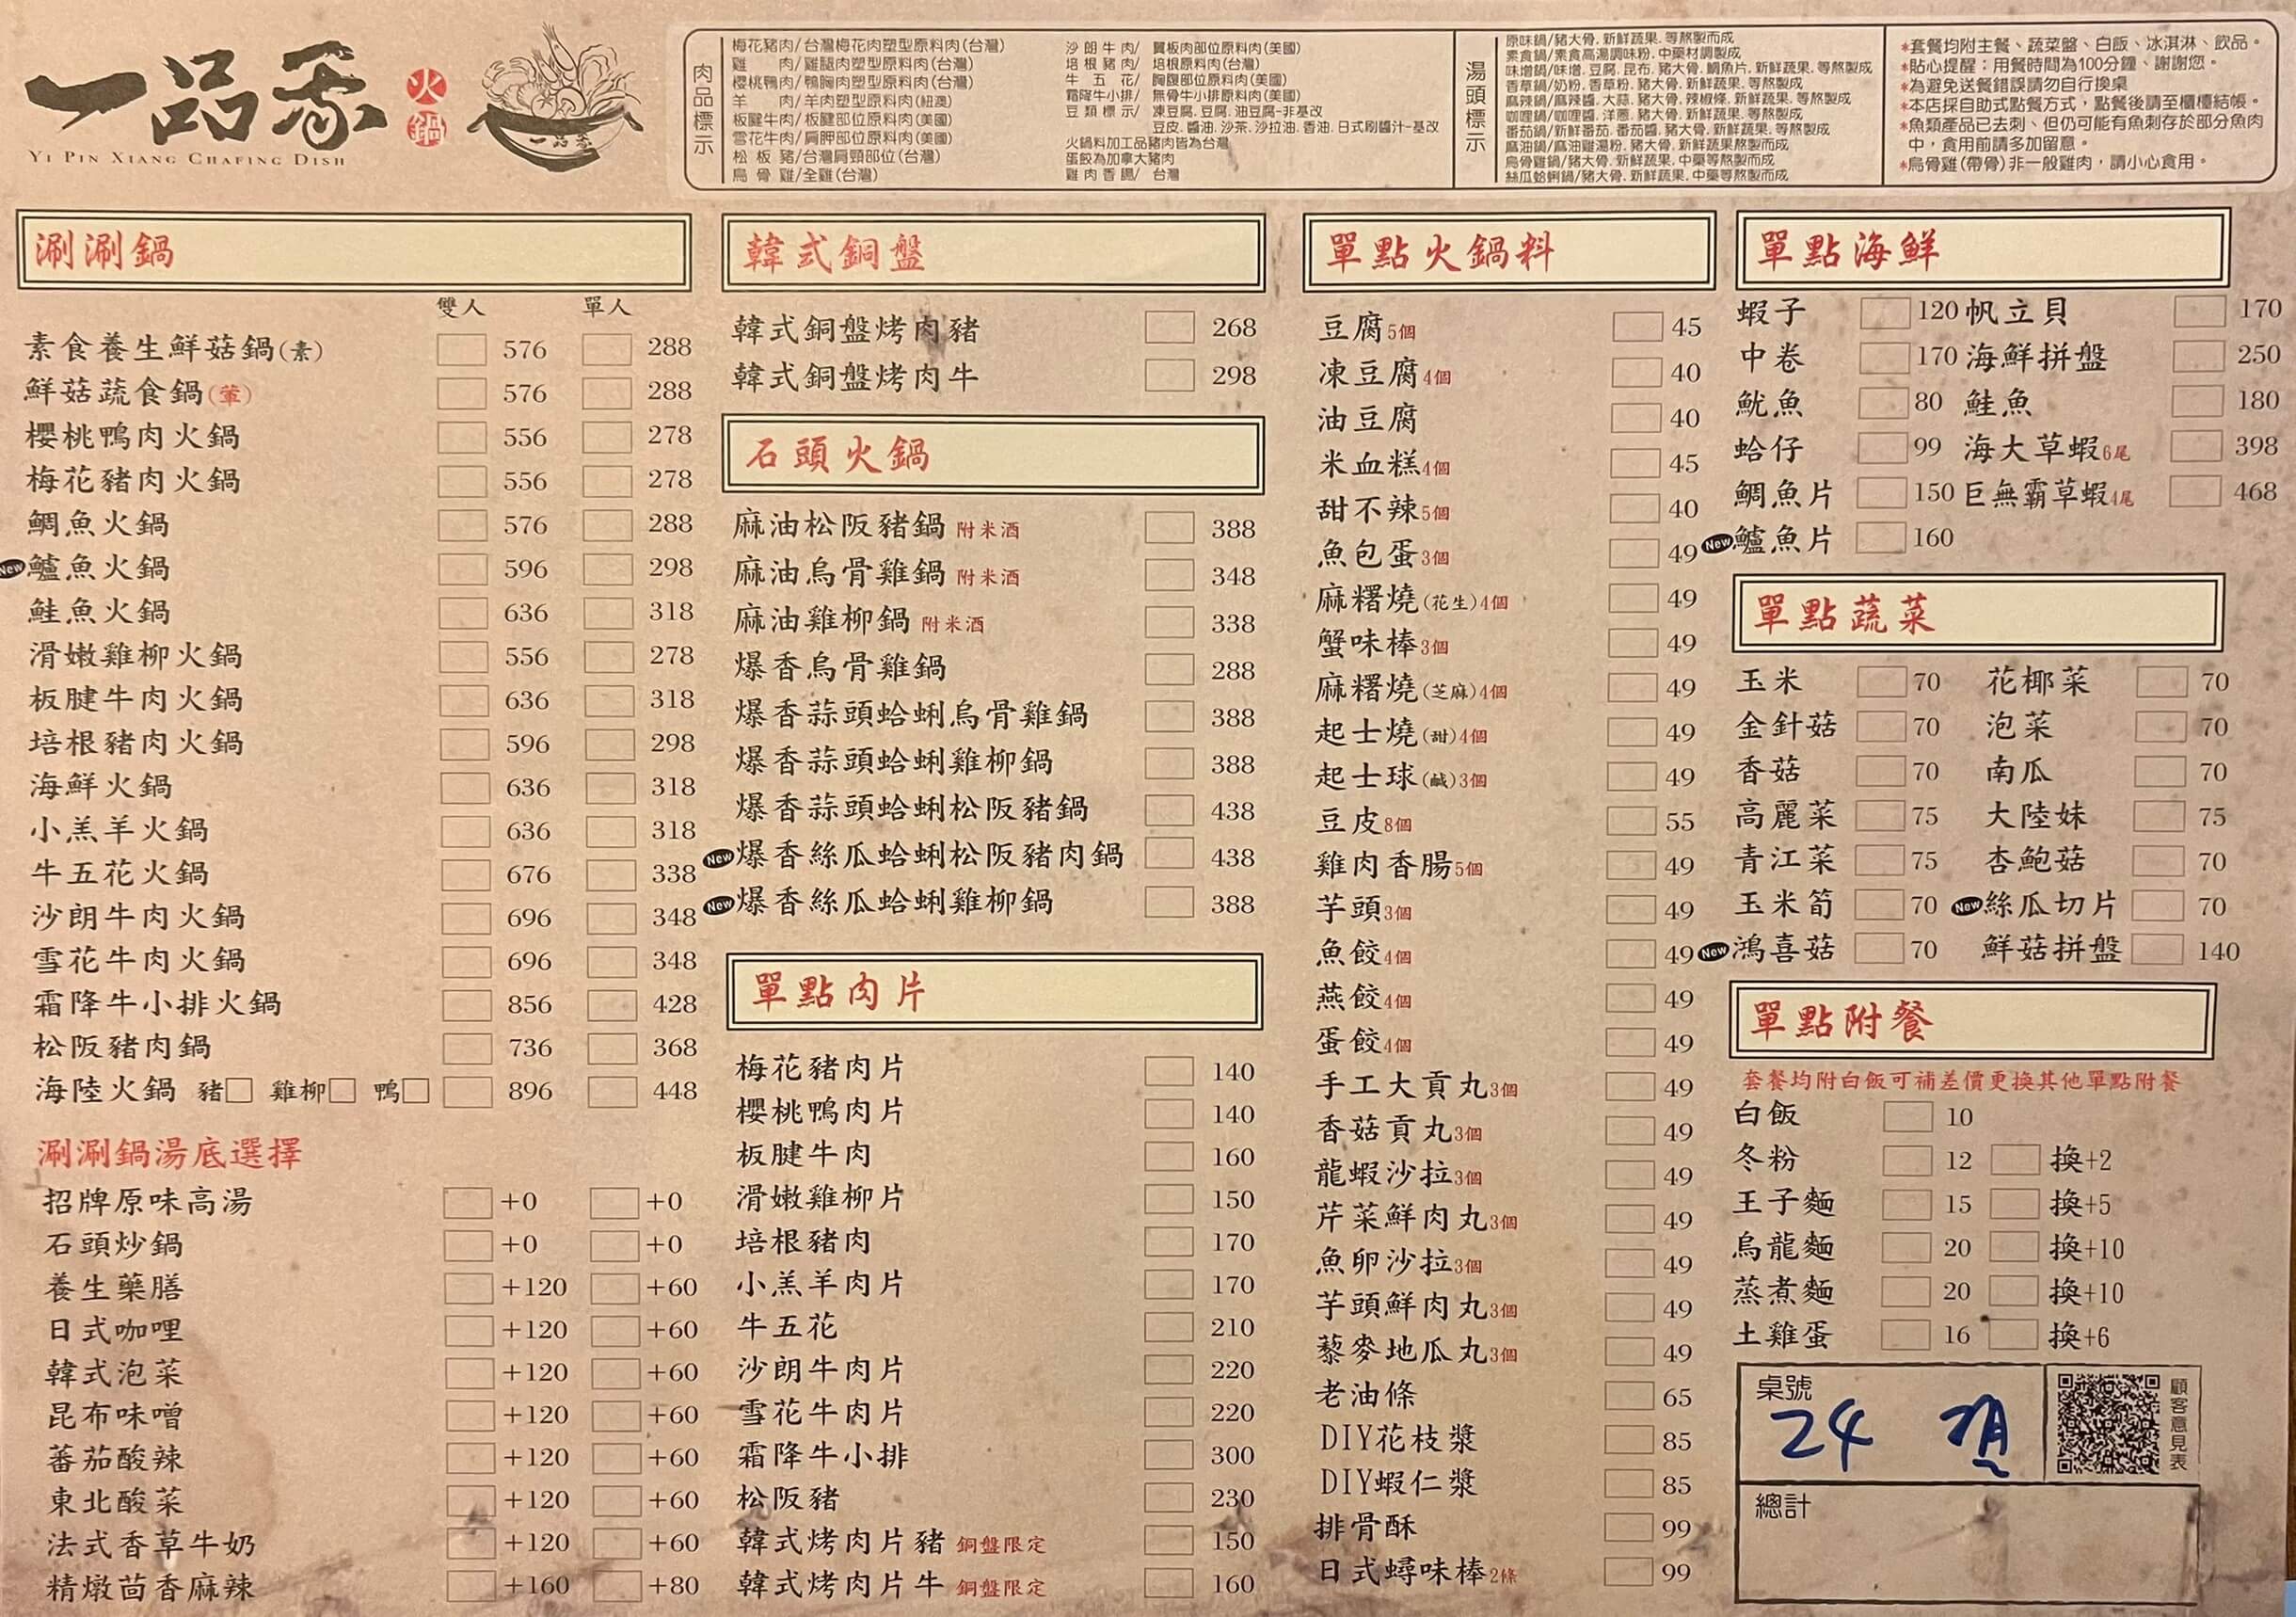 一品香
火鍋
YI PIN XIANG CHAFING DISH
肉品標示
梅花豬肉/台灣梅花肉塑型原料肉(台灣)
雞 肉/雞腿肉塑型原料肉(台灣)
櫻桃鴨肉/鴨胸肉塑型原料肉(台灣)
羊 肉/羊肉塑型原料肉(紐澳)
板腱牛肉/板腱部位原料肉(美國)
雪花牛肉/肩胛部位原料肉(美國)
松 板 豬/台灣肩頸部位(台灣)
烏 骨 雞/全雞(台灣)
沙朗牛肉/ 翼板肉部位原料肉(美國)
培根豬肉/ 培根原料肉(台灣)
牛 五 花/ 胸腹部位原料肉(美國)
霜降牛小排/ 無骨牛小排原料肉(美國)
豆類標示/ 凍豆腐.豆腐.油豆腐-非基改
豆皮.醬油.沙茶.沙拉油.香油.日式刷醬汁-基改
火鍋料加工品豬肉皆為台灣
蛋餃為加拿大豬肉
雞肉香腸/ 台灣
湯頭標示
原味鍋/豬大骨.新鮮蔬果.等熬製而成
素食鍋/素食高湯調味粉.中藥材調製成
味增鍋/味增.豆腐.昆布.豬大骨.鯛魚片.新鮮蔬果.等熬製而成
香草鍋/奶粉.香草粉.豬大骨.新鮮蔬果.等熬製成
麻辣鍋/麻辣醬.大蒜.豬大骨.辣椒條.新鮮蔬果.等熬製成
咖哩鍋/咖哩醬.洋蔥.豬大骨.新鮮蔬果.等熬製成
番茄鍋/新鮮番茄.番茄醬.豬大骨.新鮮蔬果.等熬製成
麻油鍋/麻油雞湯粉.豬大骨.新鮮蔬果.等熬製而成
烏骨雞鍋/豬大骨.新鮮蔬果.中藥等熬製而成
絲瓜蛤蜊鍋/豬大骨.新鮮蔬果.中藥等熬製而成
*套餐均附主餐、蔬菜盤、白飯、冰淇淋、飲品。
*貼心提醒：用餐時間為100分鐘、謝謝您。
*為避免送餐錯誤請勿自行換桌
*本店採自助式點餐方式，點餐後請至櫃檯結帳。
*魚類產品已去刺、但仍可能有魚刺存於部分魚肉
中，食用前請多加留意。
*烏骨雞(帶骨)非一般雞肉，請小心食用。
涮涮鍋
雙人 單人
素食養生鮮菇鍋(素) 576 288
鮮菇蔬食鍋(葷) 576 288
櫻桃鴨肉火鍋 556 278
梅花豬肉火鍋 556 278
鯛魚火鍋 576 288
New 鱸魚火鍋 596 298
鮭魚火鍋 636 318
滑嫩雞柳火鍋 556 278
板腱牛肉火鍋 636 318
培根豬肉火鍋 596 298
海鮮火鍋 636 318
小羔羊火鍋 636 318
牛五花火鍋 676 338
沙朗牛肉火鍋 696 348
雪花牛肉火鍋 696 348
霜降牛小排火鍋 856 428
松阪豬肉鍋 736 368
海陸火鍋 豬 雞柳 鴨 896 448
涮涮鍋湯底選擇
招牌原味高湯 +0 +0
石頭炒鍋 +0 +0
養生藥膳 +120 +60
日式咖哩 +120 +60
韓式泡菜 +120 +60
昆布味噌 +120 +60
蕃茄酸辣 +120 +60
東北酸菜 +120 +60
法式香草牛奶 +120 +60
精燉茴香麻辣 +160 +80
韓式銅盤
韓式銅盤烤肉豬 268
韓式銅盤烤肉牛 298
石頭火鍋
麻油松阪豬鍋 附米酒 388
麻油烏骨雞鍋 附米酒 348
麻油雞柳鍋 附米酒 338
爆香烏骨雞鍋 288
爆香蒜頭蛤蜊烏骨雞鍋 388
爆香蒜頭蛤蜊雞柳鍋 388
爆香蒜頭蛤蜊松阪豬鍋 438
New 爆香絲瓜蛤蜊松阪豬肉鍋 438
New 爆香絲瓜蛤蜊雞柳鍋 388
單點肉片
梅花豬肉片 140
櫻桃鴨肉片 140
板腱牛肉 160
滑嫩雞柳片 150
培根豬肉 170
小羔羊肉片 170
牛五花 210
沙朗牛肉片 220
雪花牛肉片 220
霜降牛小排 300
松阪豬 230
韓式烤肉片豬 銅盤限定 150
韓式烤肉片牛 銅盤限定 160
單點火鍋料
豆腐5個 45
凍豆腐4個 40
油豆腐 40
米血糕4個 45
甜不辣5個 40
魚包蛋3個 49
麻糬燒(花生)4個 49
蟹味棒3個 49
麻糬燒(芝麻)4個 49
起士燒(甜)4個 49
起士球(鹹)3個 49
豆皮8個 55
雞肉香腸5個 49
芋頭3個 49
魚餃4個 49
燕餃4個 49
蛋餃4個 49
手工大貢丸3個 49
香菇貢丸3個 49
龍蝦沙拉3個 49
芹菜鮮肉丸3個 49
魚卵沙拉3個 49
芋頭鮮肉丸3個 49
藜麥地瓜丸3個 49
老油條 65
DIY花枝漿 85
DIY蝦仁漿 85
排骨酥 99
日式蟳味棒2條 99
單點海鮮
蝦子 120 帆立貝 170
中卷 170 海鮮拼盤 250
魷魚 80 鮭魚 180
蛤仔 99 海大草蝦6尾 398
鯛魚片 150 巨無霸草蝦4尾 468
New 鱸魚片 160
單點蔬菜
玉米 70 花椰菜 70
金針菇 70 泡菜 70
香菇 70 南瓜 70
高麗菜 75 大陸妹 75
青江菜 75 杏鮑菇 70
玉米筍 70 New 絲瓜切片 70
New 鴻喜菇 70 鮮菇拼盤 140
單點附餐
套餐均附白飯可補差價更換其他單點附餐
白飯 10
冬粉 12 換+2
王子麵 15 換+5
烏龍麵 20 換+10
蒸煮麵 20 換+10
土雞蛋 16 換+6
桌號
24
顧客意見表
總計